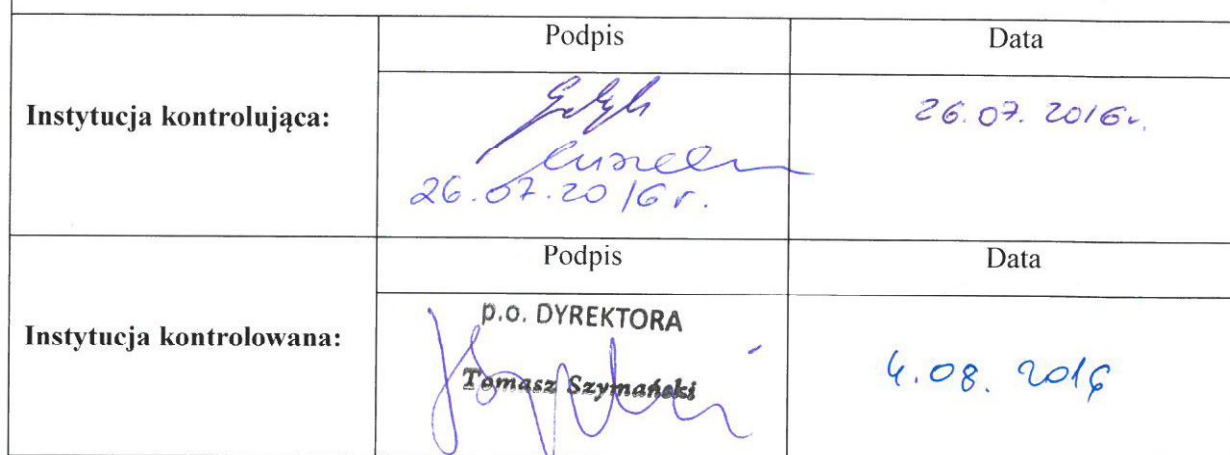 Podpis
Data
Instytucja kontrolująca:
26.07.2016r.
26.07.2016r.
Podpis
Data
Instytucja kontrolowana:
p.o. DYREKTORA
Tomasz Szymański
4.08.2016